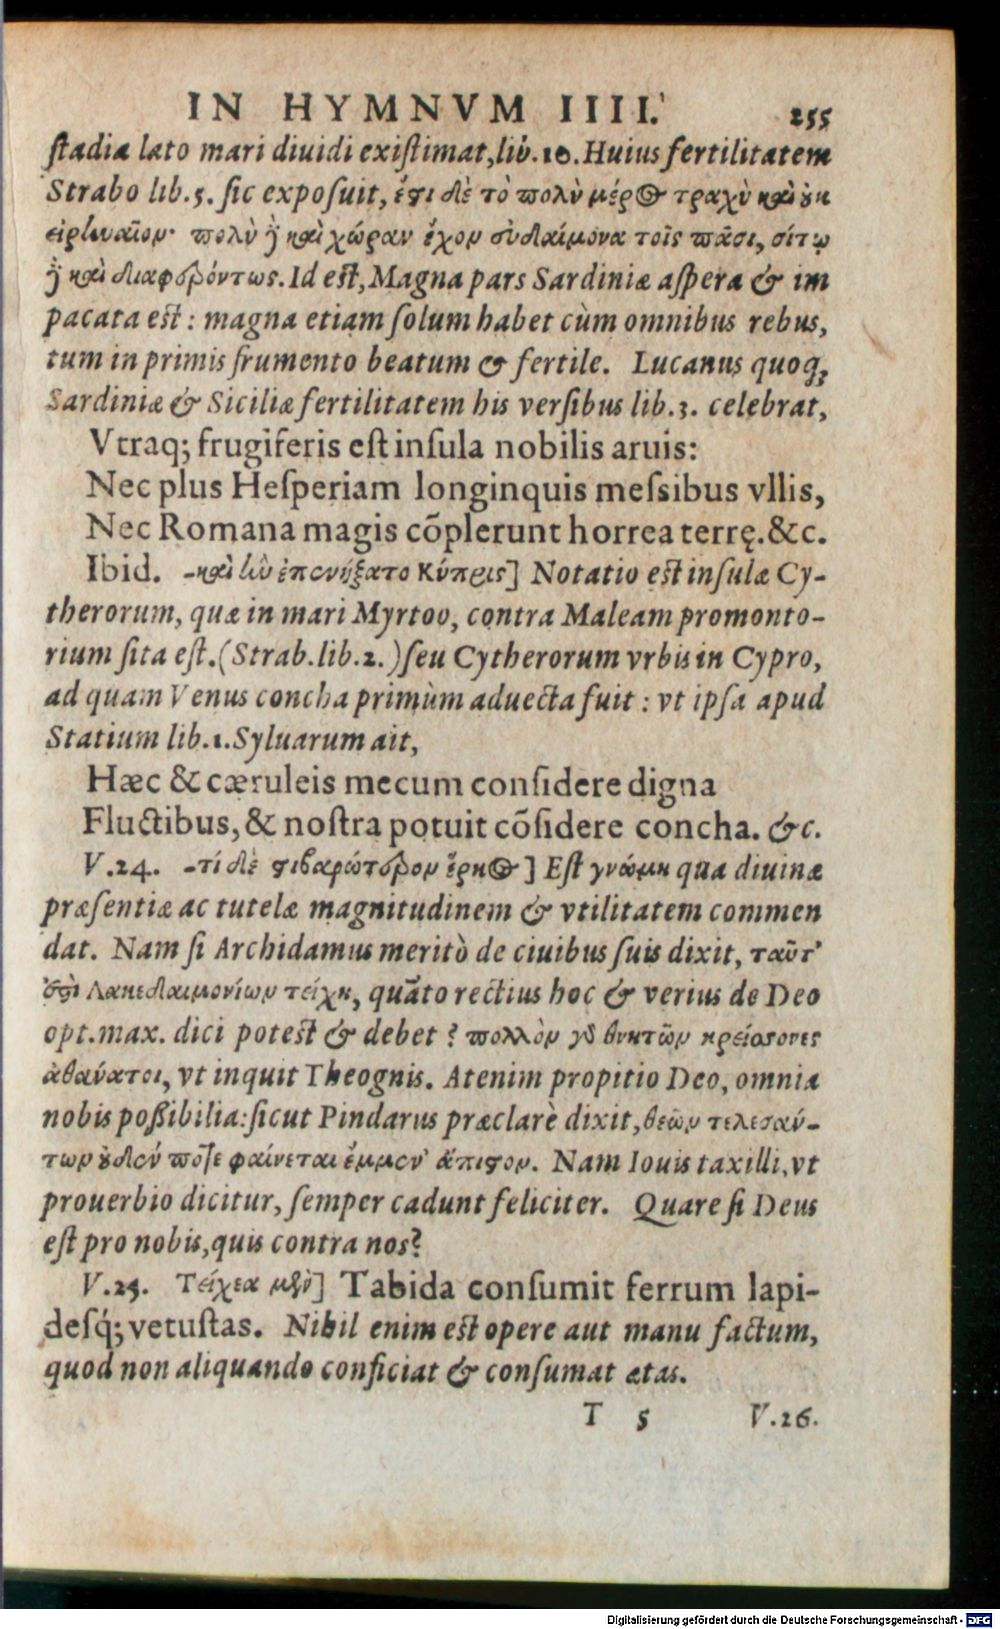 IN HYMNVM IIII. 255
ſtadia lato mari diuidi exiſtimat, lib. 10. Huius fertilitatem
Strabo lib. 5. ſic expoſuit, ἔστι δὲ τὸ πολὺ μέρος τραχὺ καὶ οὐκ
εἰρηναῖον· πολὺ δὲ καὶ χώραν ἔχον εὐδαίμονα τοῖς πᾶσι, σίτῳ
δὲ καὶ διαφερόντως. Id eſt, Magna pars Sardiniæ aſpera & im
pacata eſt : magna etiam ſolum habet cùm omnibus rebus,
tum in primis frumento beatum & fertile. Lucanus quoq;
Sardiniæ & Siciliæ fertilitatem his verſibus lib. 3. celebrat,
Vtraq; frugiferis eſt inſula nobilis aruis:
Nec plus Heſperiam longinquis meſsibus vllis,
Nec Romana magis cõplerunt horrea terrę. &c.
Ibid. -καὶ ἣν ἐπενήξατο Κύπρις] Notatio eſt inſulæ Cy-
therorum, quæ in mari Myrtoo, contra Maleam promonto-
rium ſita eſt. (Strab. lib. 2.) ſeu Cytherorum vrbis in Cypro,
ad quam Venus concha primùm aduecta fuit : vt ipſa apud
Statium lib. 1. Syluarum ait,
Hæc & cæruleis mecum conſidere digna
Fluctibus, & noſtra potuit cõſidere concha. &c.
V. 24. -τί δὲ στιβαρώτερον ἕρκος] Eſt γνώμη qua diuinæ
præſentiæ ac tutelæ magnitudinem & vtilitatem commen
dat. Nam ſi Archidamus meritò de ciuibus ſuis dixit, ταῦτ'
ἐστὶ Λακεδαιμονίων τείχη, quãto rectius hoc & verius de Deo
opt. max. dici poteſt & debet ? πολλὸν γὰρ θνητῶν κρείσσονες
ἀθανάτοι, vt inquit Theognis. Atenim propitio Deo, omnia
nobis poßibilia: ſicut Pindarus præclarè dixit, θεῶν τελεσάν-
των οὐδέν ποτε φαίνεται ἔμμεν ἄπιστον. Nam Iouis taxilli, vt
prouerbio dicitur, ſemper cadunt feliciter. Quare ſi Deus
eſt pro nobis, quis contra nos?
V. 25. Τείχεα μὲν] Tabida conſumit ferrum lapi-
deſq́; vetuſtas. Nihil enim eſt opere aut manu factum,
quod non aliquando conficiat & conſumat ætas.
T 5 V. 26.
Digitalisierung gefördert durch die Deutsche Forschungsgemeinschaft - DFG